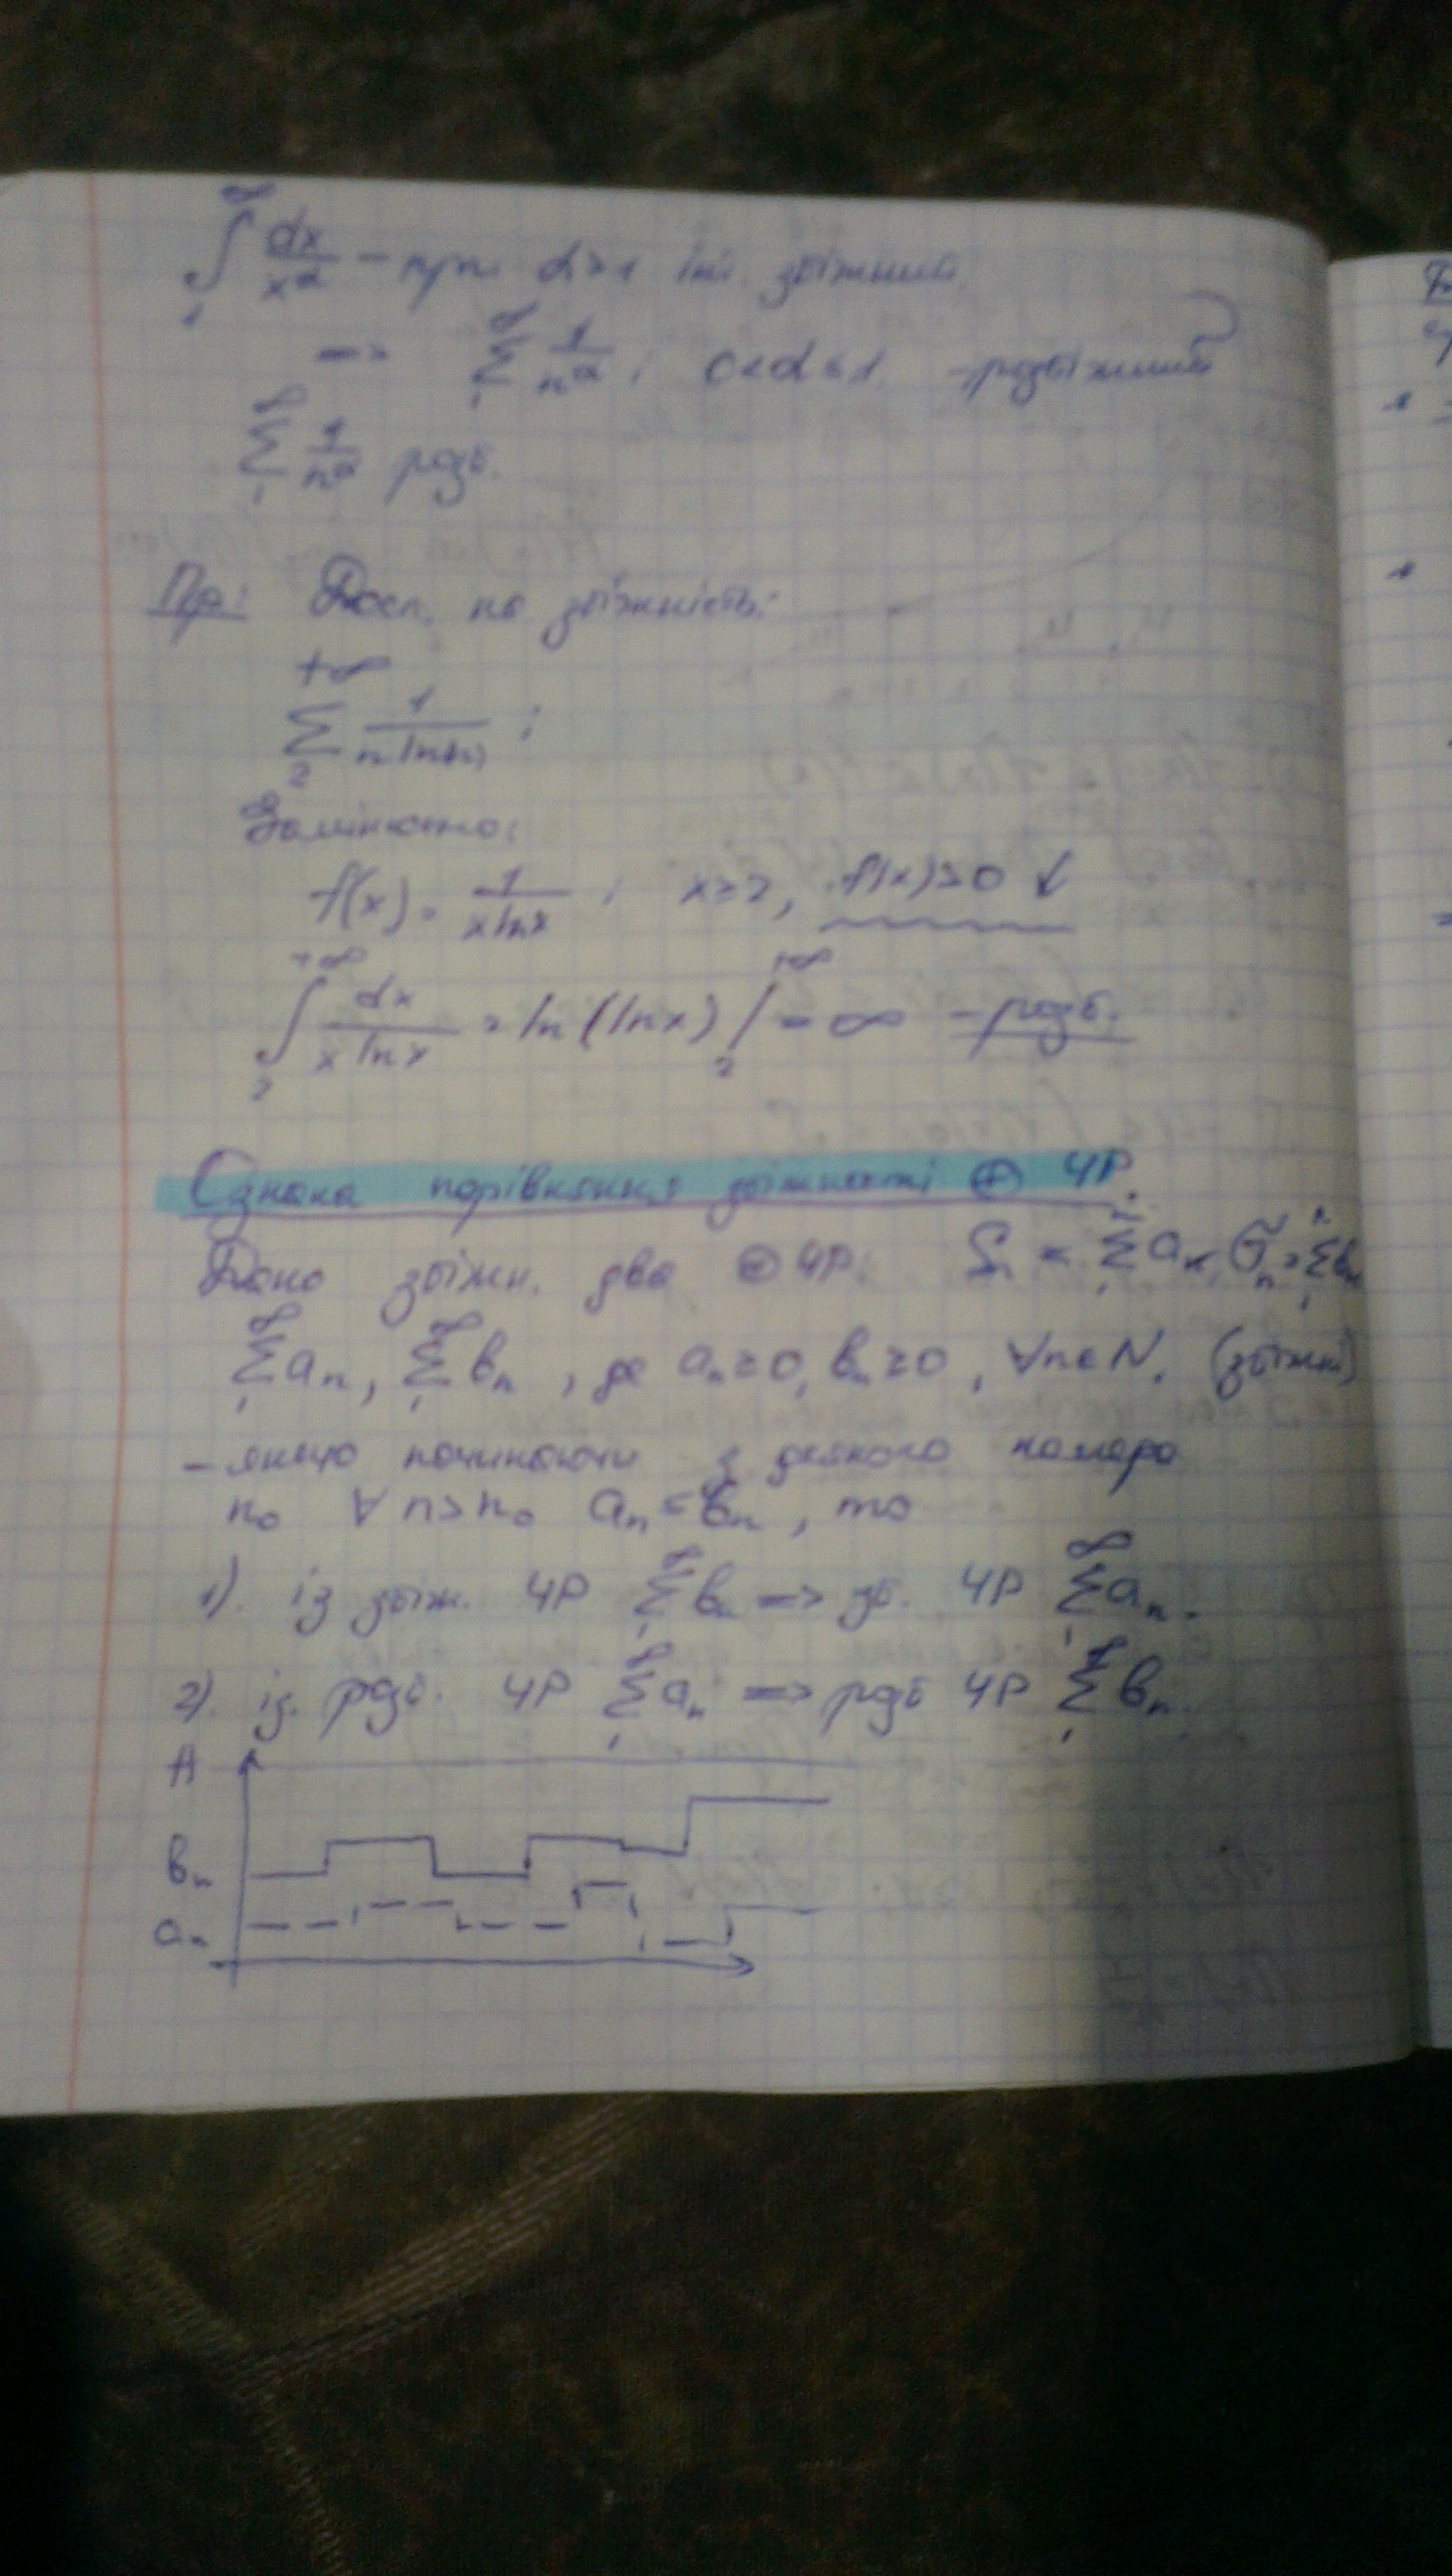 ∫₁^∞ dx/x^α – при α>1 інт збіжний
=> ∑₁^∞ 1/n^α ; 0<α≤1 – розбіжний
∑₁^∞ 1/n^α розб.
Пр: Досл. на збіжність:
∑₂^{+∞} 1/(n ln(n)) ;
Замінюємо:
f(x) = 1/(x ln x) ; x≥2, f(x)>0 ↓
∫₂^{+∞} dx/(x ln x) = ln(ln x) |₂^{+∞} = ∞ – розб.
Ознака порівняння збіжності ⊕ ЧР.
Дано збіжн. два ⊕ ЧР:
∑₁^∞ aₙ, ∑₁^∞ bₙ, де aₙ≥0, bₙ≥0, ∀n∈N. (збіжні)
– якщо починаючи з деякого номера
n₀ ∀ n>n₀ aₙ ≤ bₙ, то
1). із збіж. ЧР ∑₁^∞ bₙ => зб. ЧР ∑₁^∞ aₙ.
2). із. розб. ЧР ∑₁^∞ aₙ => розб ЧР ∑₁^∞ bₙ.
A
bₙ
aₙ